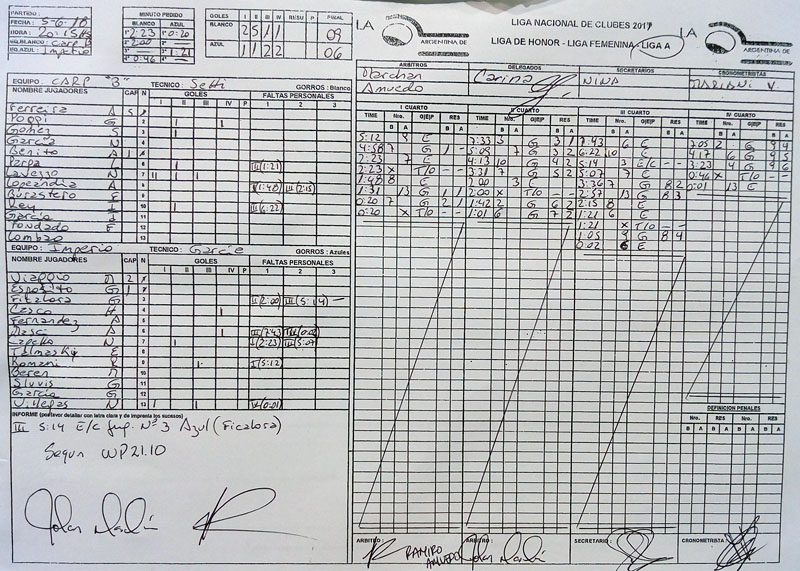 PARTIDO:
FECHA: 5-6-18
HORA: 20:15 HS
EQ.BLANCO: Carp B
EQ.AZUL: Imperio
MINUTO PEDIDO
BLANCO AZUL
1º 2:23 1º 0:20
2º 2:00
3º 1:21
4º 0:46
GOLES I II III IV RESU P FINAL
BLANCO 2 5 1 1 09
AZUL 1 1 2 2 06
LA
ARGENTINA DE
LIGA NACIONAL DE CLUBES 2017
LIGA DE HONOR - LIGA FEMENINA - LIGA A
LA
ARGENTINA DE
EQUIPO: CARP "B" TECNICO: Setti GORROS: Blanco
NOMBRE JUGADORES CAP N GOLES FALTAS PERSONALES
I II III IV P 1 2 3
Ferreira A 1
Poggi G 2
Gomez S 3
Garcia N 4
Benito A 5
Parpa 6 III(1:21)
Lavezzo N 7
Lopeandia A 8 I(1:48) III(2:15)
Burastero F 9
Rey I 10 III(6:22)
Garcia I 11
Fondado F 12
Lombao 13
EQUIPO: Imperio TECNICO: Garcie GORROS: Azules
NOMBRE JUGADORES CAP N GOLES FALTAS PERSONALES
I II III IV P 1 2 3
Viaggio
Esposito G
Ficalora G 3 II(2:00) III(5:14) —
Casco H 4
Fernandez A 5
Dasci A 6 III(7:43) III(0:02)
Capello N 7 I(2:23) III(5:07)
Talmasky E 8
Romani R 9 I(5:12)
Beren 10
Sluvis G 11
Garcia G 12
Villegas N 13 IV(0:01)
INFORME (por favor detallar con letra clara y de imprenta los sucesos)
III 5:14 E/C Jug. Nº 3 Azul (Ficalora)
Segun WP21.10
ARBITROS DELEGADOS SECRETARIOS CRONOMETRISTAS
Marchan Carina NINA MARIANI V.
Amuedo
I CUARTO II CUARTO III CUARTO IV CUARTO
TIME Nro. G/E/P RES
B A B A
5:12 9 E
4:58 7 G 1 -
2:23 7 E
2:23 X T/O - -
1:48 8 E
1:31 13 G 1 1
0:20 7 G 2 1
0:20 X T/O - -
7:33 3 G 3 1
5:09 7 G 3 2
4:13 10 G 4 2
3:31 7 G 5 2
2:00 3
2:00 X T/O - -
1:42 2 G 6 2
1:01 6 G 7 2
7:43 6 E
6:22 10 E
5:14 3 E/C - -
5:07 7 E
3:36 7 G 8 2
2:57 13 G 8 3
2:15 8 E
1:21 6 E
1:21 X T/O - -
1:05 9 G 8 4
0:02 6 E
7:05 2 G 9 4
4:17 6 G 9 5
3:23 4 G 9 6
0:46 X T/O - -
0:01 13 E
DEFINICION PENALES
Nro. RES Nro. RES
B A B A B A B A
ARBITRO: RAMIRO AMUEDO ARBITRO: SECRETARIO: CRONOMETRISTA: